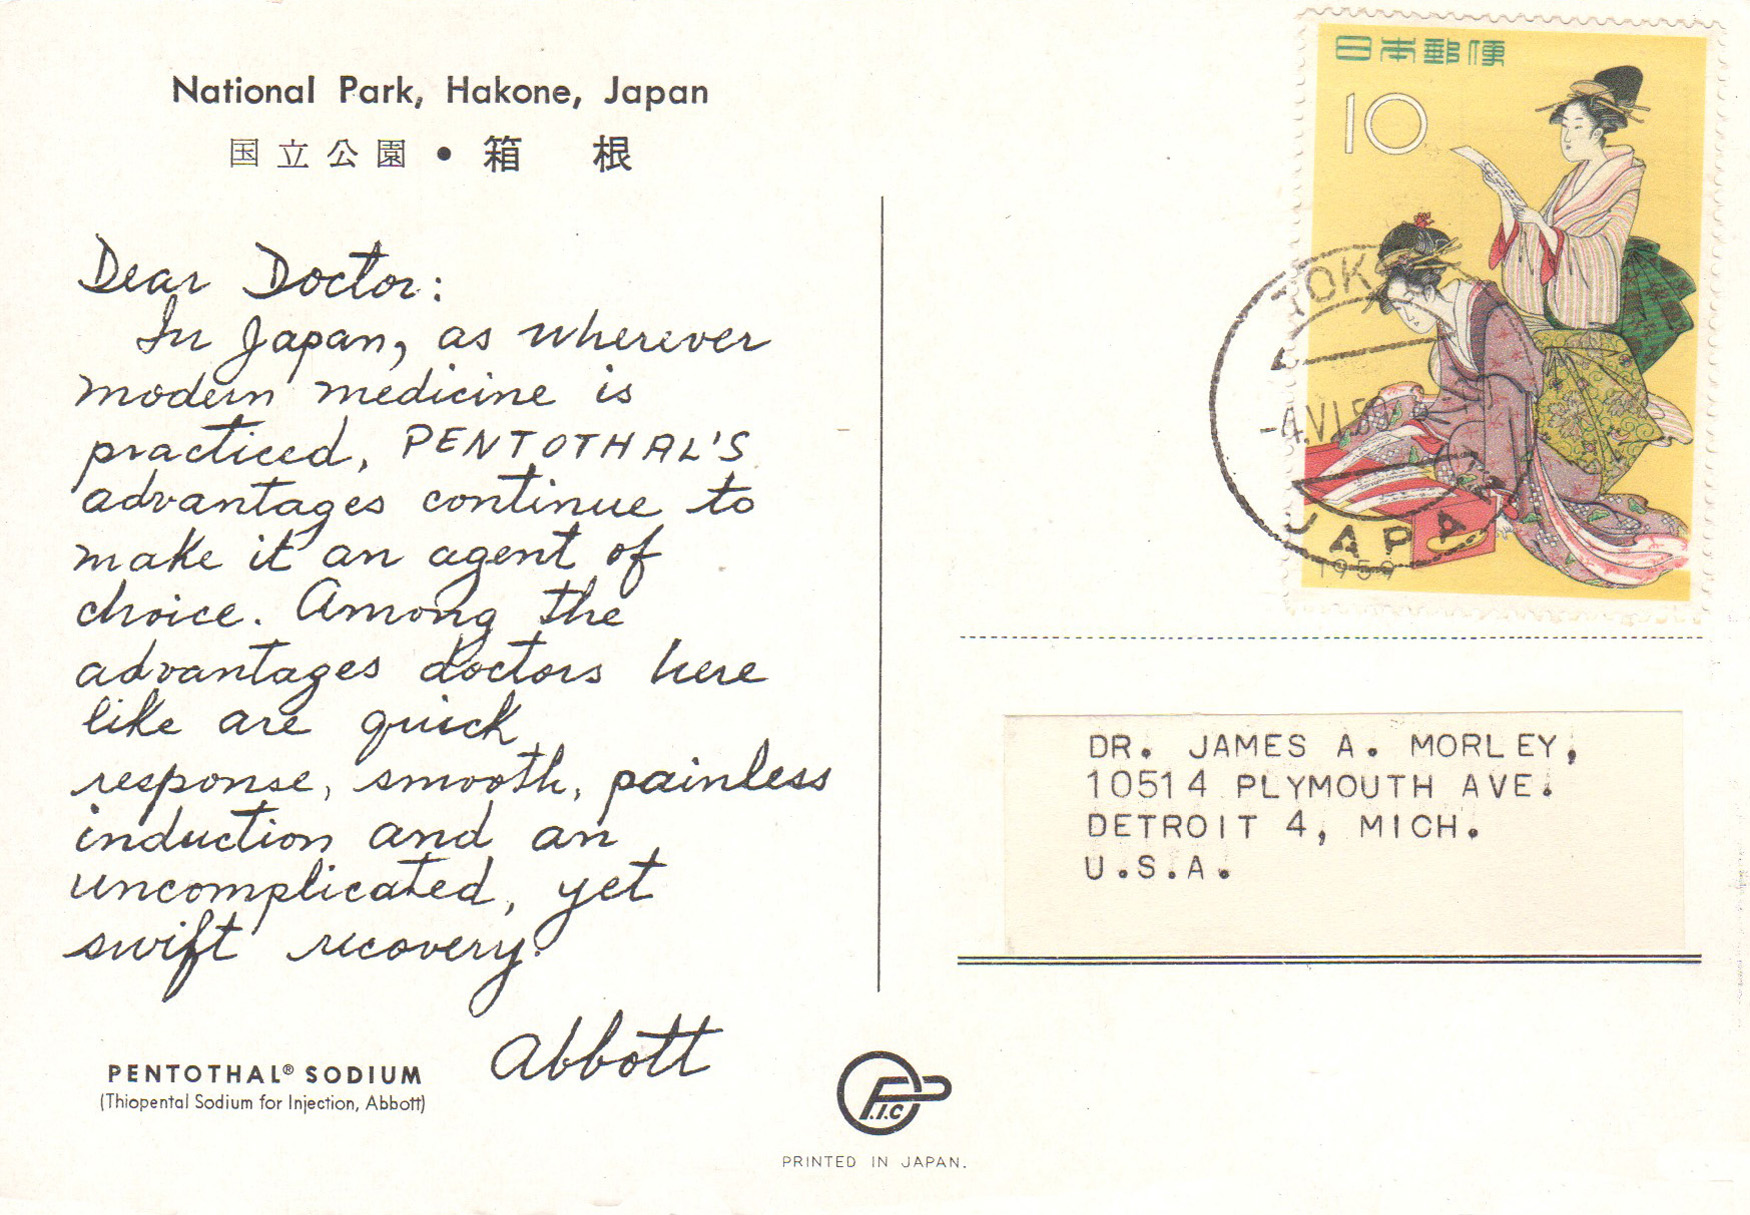 National Park, Hakone, Japan
国立公園・箱 根
Dear Doctor:
In Japan, as wherever
modern medicine is
practiced, PENTOTHAL'S
advantages continue to
make it an agent of
choice. Among the
advantages doctors here
like are quick
response, smooth, painless
induction and an
uncomplicated, yet
swift recovery.
Abbott
PENTOTHAL® SODIUM
(Thiopental Sodium for Injection, Abbott)
P.I.C
PRINTED IN JAPAN.
日本郵便
10
TOK
-4.VI.59
JAPA
1959
DR. JAMES A. MORLEY,
10514 PLYMOUTH AVE.
DETROIT 4, MICH.
U.S.A.